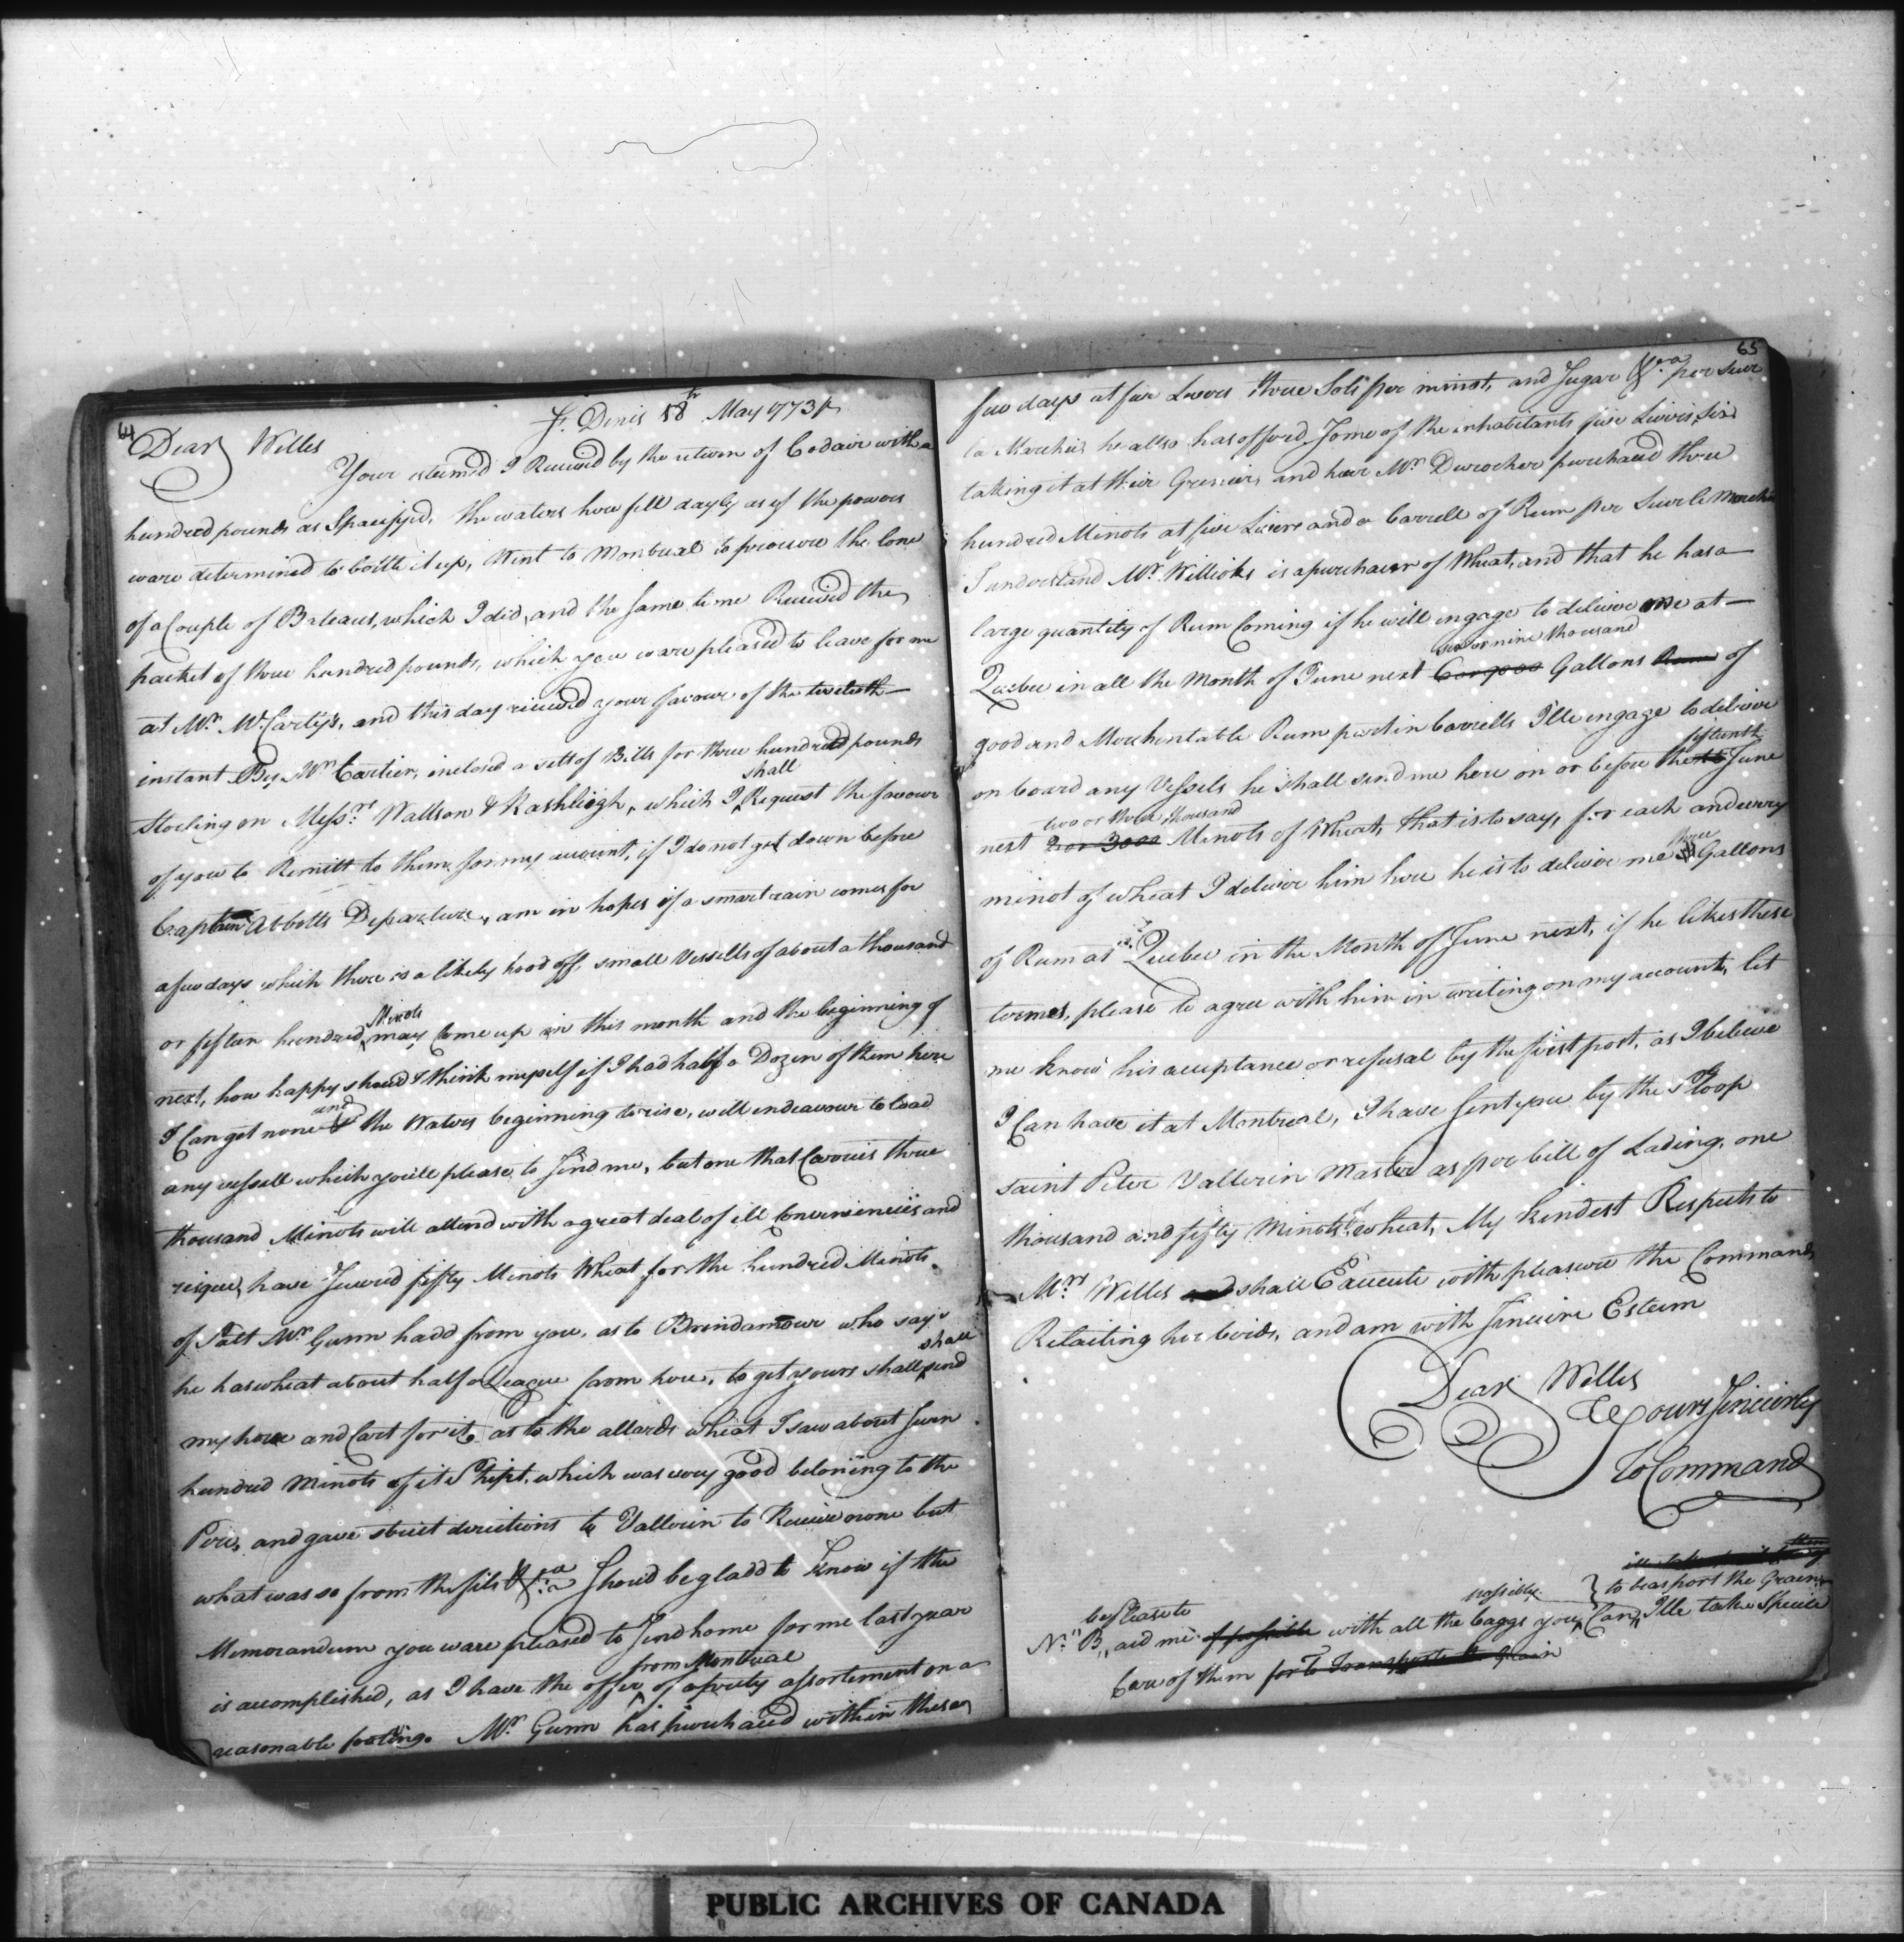 64
St. Denis 18th May 1773
Dear Welles
Your esteemed I Received by the return of Codair with a
hundred pounds as Specifyed, the waters here fell dayly as if the powers
ware determined to bottle it up, Went to Montreal to procure the lone
of a Couple of Bateaus, which I did, and the same time Received the
packet of three hundred pounds, which you ware pleased to leave for me
at Mr. McCarty's, and this day received your favour of the twelveth
instant By Mr Cartier, inclosed a sett of Bills for three hundred pounds
shall
Sterling on Messrs Wattson & Rashliegh, which I Request the favour
of you to Remitt to them for my account, if I do not get down before
Captain Abbotts Departure, am in hopes if a smart rain comes for
a few days which there is a likely hood off, small Vessells of about a thousand
Minots
or fiften hundred may Come up in this month and the beginning of
next, how happy shoud I think myself if I had half a Dozen of them here
and
I Can get none & the Waters beginning to rise, will endeavour to load
any vessell which you'll please to Send me, but one that Carries three
thousand Minots will attend with a great deal of ill Conveniencies and
risque, have Secured fifty Minots Wheat for the hundred Minots
of Salt Mr Gunn hadd from you, as to Brindamour who says
shall
he has wheat about half a League from here, to get yours shall send
my horse and Cart for it, as to the allards wheat I saw about Seven
hundred Minots of it Shipt, which was very good beloning to the
Pere, and gave strict directions to Vallerin to Receive none but
what was so from the fils &ca Shoud be gladd to Know if the
Memorandum you ware pleased to Send home for me last year
from Montreal
is accomplished, as I have the offer of a prety assortement on a
reasonable footing. Mr Gunn has purchased within these
65
few days at five Livers three Sols per minot, and Sugar &ca per Sur
la Marchéis he allso has offord Some of the inhabitants five Livris Six
taking it at their Greniers, and here Mr Durocher purchased three
hundred Minots at five Livers and a barrell of Rum per Sur le Marché
I understand Mr Willioks is a purchaser of Wheat, and that he has a
large quantity of Rum Coming if he will engage to deliver me at
six or nine thousand
Quebec in all the Month of June next 6 or 9000 Gallons Rum of
good and Merchentable Rum part in barrells I'lle engage to deliver
fiftenth
on board any Vessels he shall send me here on or before the June
two or three thousand
next 2 or 3000 Minots of Wheat, that is to say, for each and every
three
minot of wheat I deliver him here he is to deliver me Gallons
of Rum at Quebec in the Month of June next, if he likes these
termes, please to agree with him in writing on my account, let
me know his acceptance or refusal by the first post, as I believe
I Can have it at Montreal, I have Sent you by the Sloop
saint Peter Vallerin Master as per bill of Lading, one
thousand and fifty Minots of wheat, My kindest Respects to
Mrs Welles and shall Execute with pleasure the Commands
Relaiting her birds, and am with Sincere Esteem
Dear Welles
Yours Sincerely
To Command
possibly to trasport the Grain
please to
N.B. aid me if possible with all the baggs you Can, I'lle take Special
Care of them for to Transporte the Grain
PUBLIC ARCHIVES OF CANADA